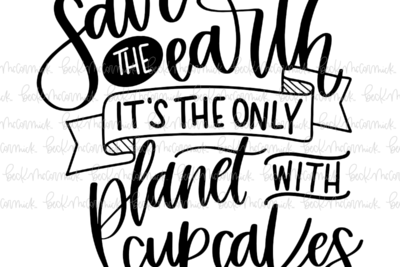 Save
THE earth
IT'S THE ONLY
planet WITH
cupcakes